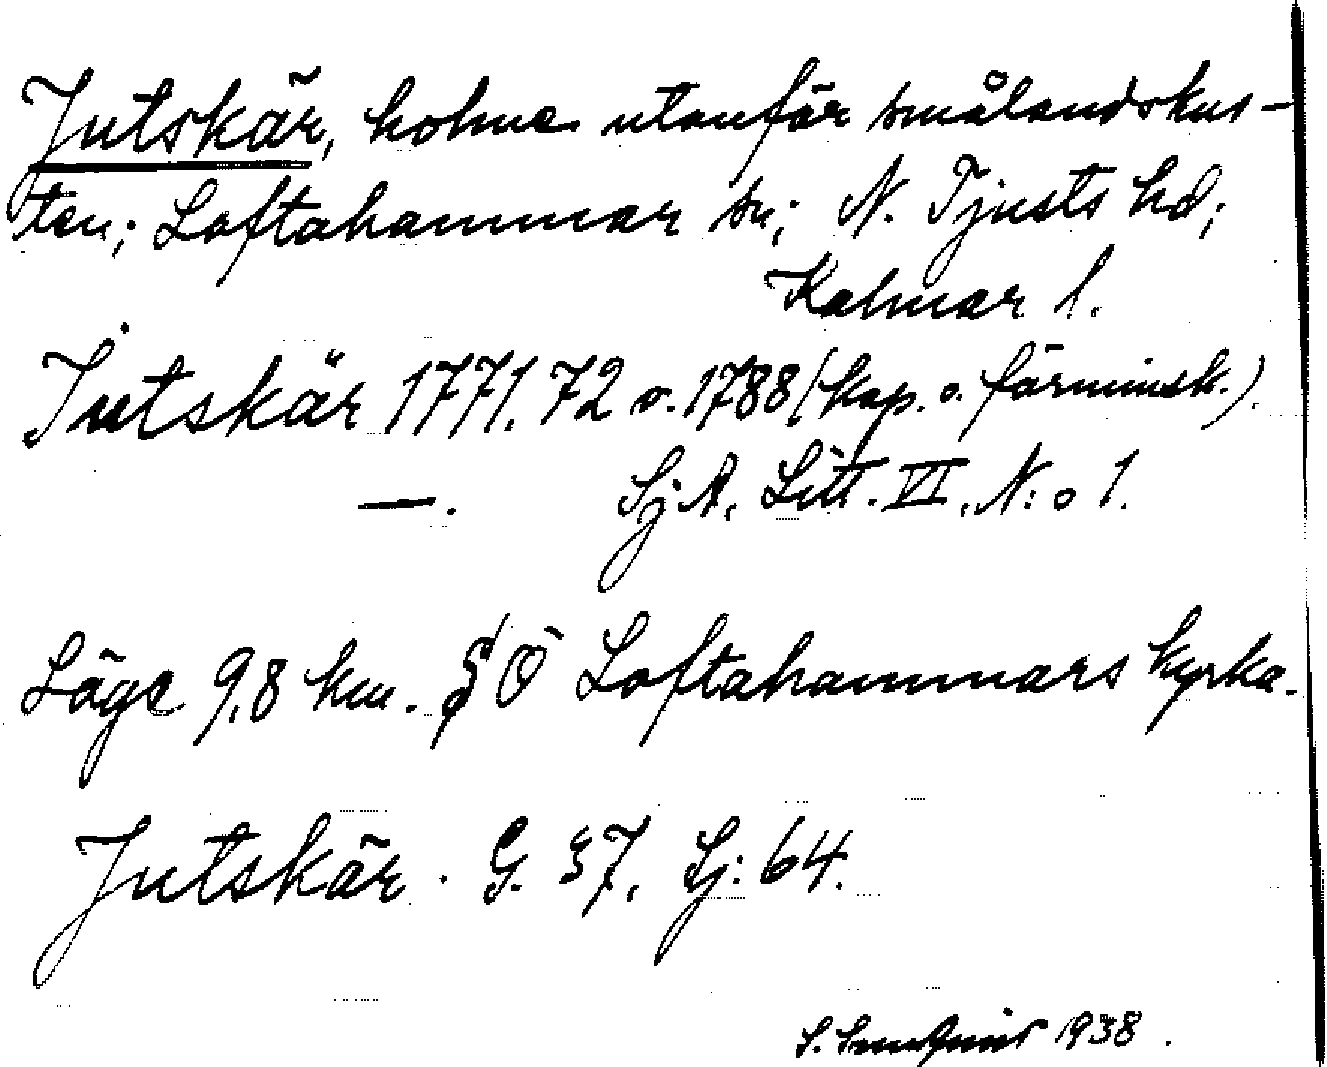 Jutskär, holme utanför smålandskus-
ten; Loftahammar sn; N. Tjusts hd;
Kalmar l.
Jutskär 1771. 72 o. 1788 (kop. o. förminsk.).
—. Sj A. Litt. VI. N:o 1.
Läge 9,8 km. SÖ Loftahammars kyrka.
Jutskär. G. 37. Sj: 64.
S. 1938.